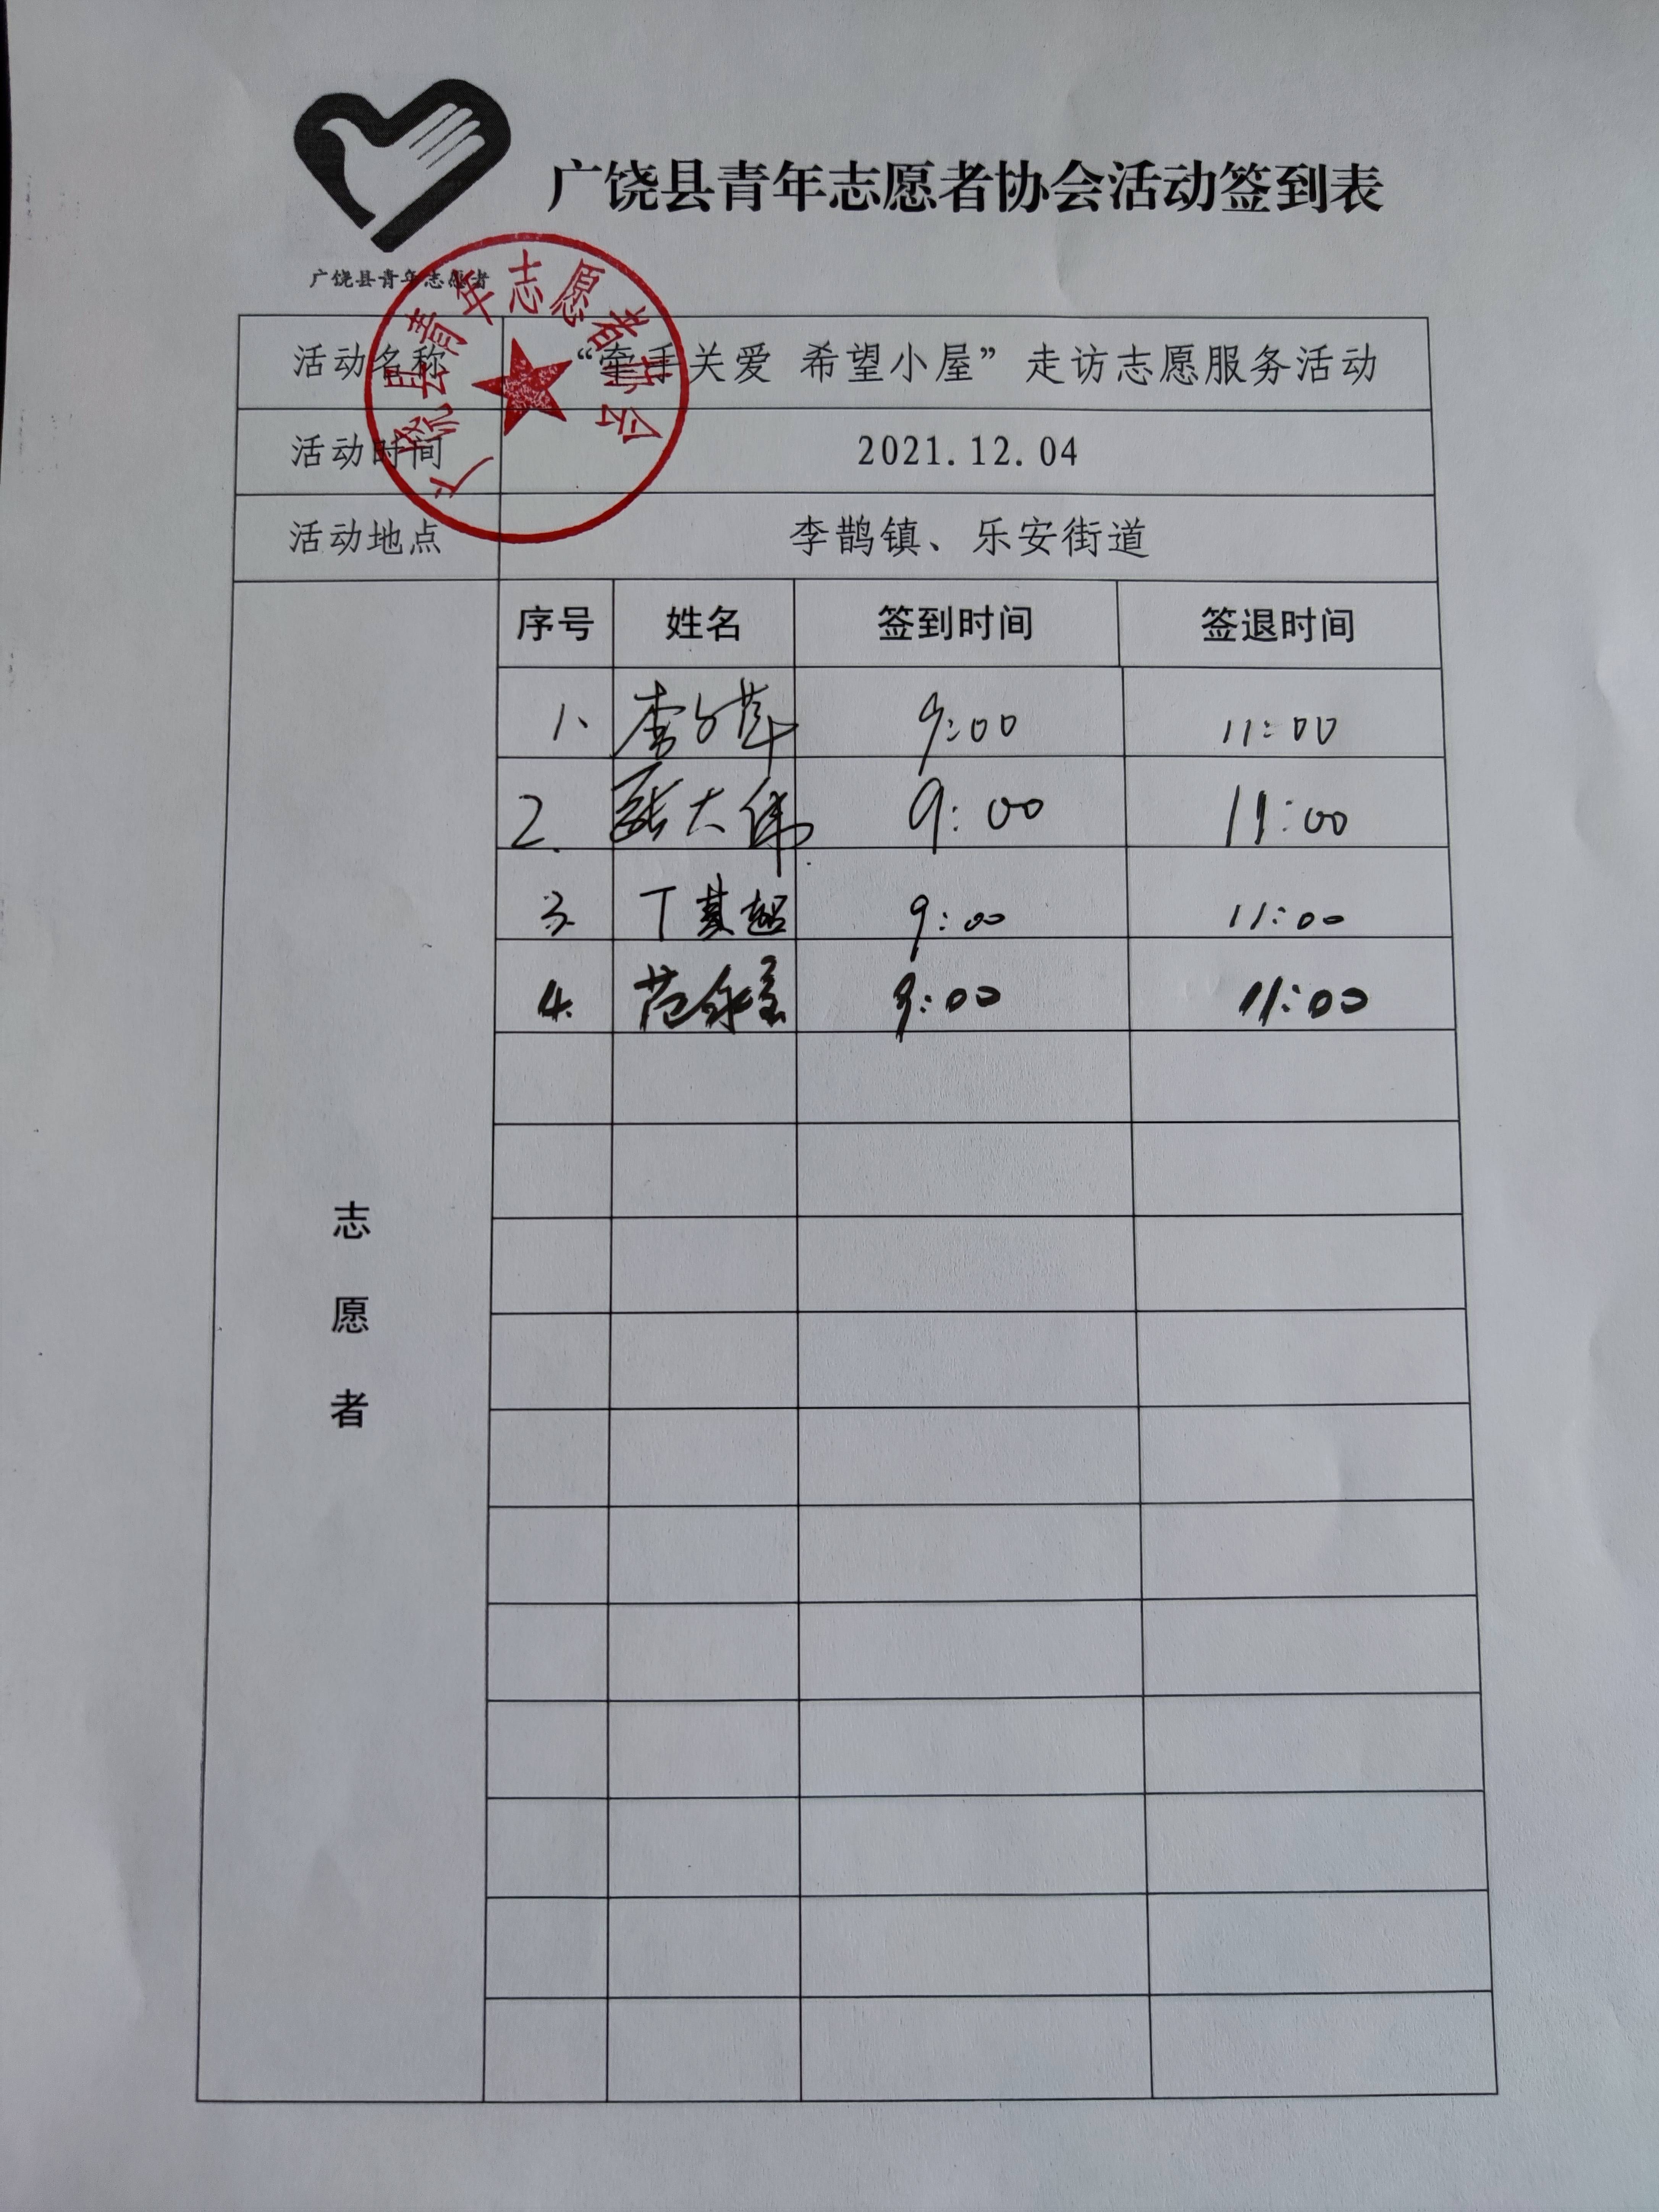 广饶县青年志愿者协会活动签到表
广饶县青年志愿者
广饶县青年志愿者协会
活动名称 “牵手关爱 希望小屋”走访志愿服务活动
活动时间 2021.12.04
活动地点 李鹊镇、乐安街道
志愿者
序号 姓名 签到时间 签退时间
1、 李 9:00 11:00
2. 张大伟 9:00 11:00
3. 丁其超 9:00 11:00
4. 范永 9:00 11:00